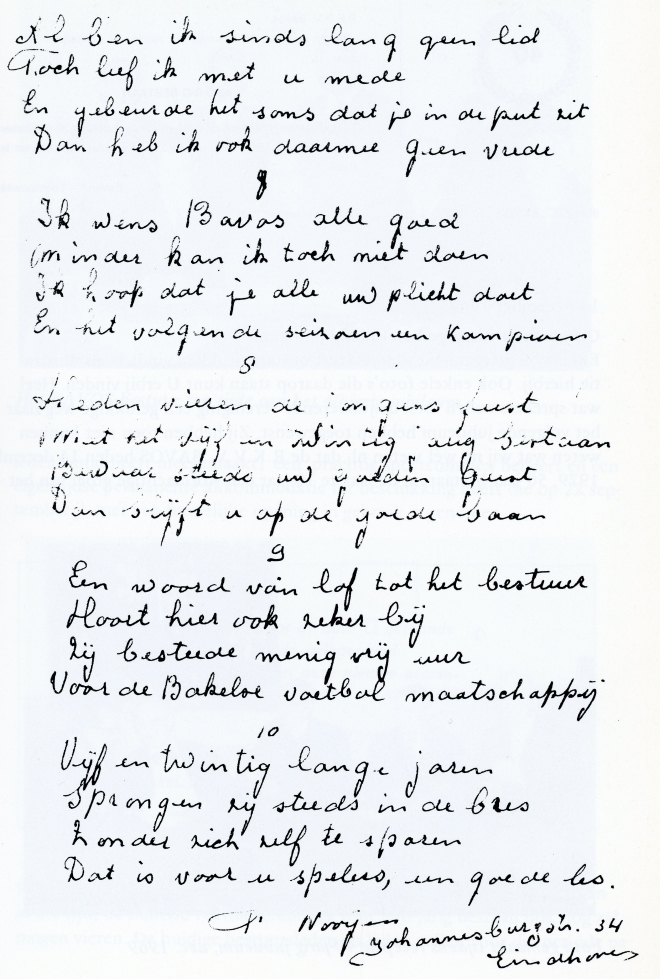 Al ben ik sinds lang geen lid
Toch leef ik met u mede
En gebeurde het soms dat je in de put zit
Dan heb ik ook daarmee geen vrede
7
Ik wens Bavos alle goed
minder kan ik toch niet doen
Ik hoop dat je alle uw plicht doet
En het volgende seizoen een Kampioen
8
Heden vieren de jongens feest
Met het vijf en twintig jarig bestaan
Bewaar steeds uw goeden Geest
Dan blijft u op de goede baan
9
Een woord van lof tot het bestuur
Hoort hier ook zeker bij
Zij besteede menig vrij uur
Voor de Bakelse voetbal maatschappij
10
Vijf en twintig lange jaren
Sprongen zij steeds in de bres
Zonder zich zelf te sparen
Dat is voor u spelers, een goede les.
Nooijen
Johannesburgstr. 34
Eindhoven